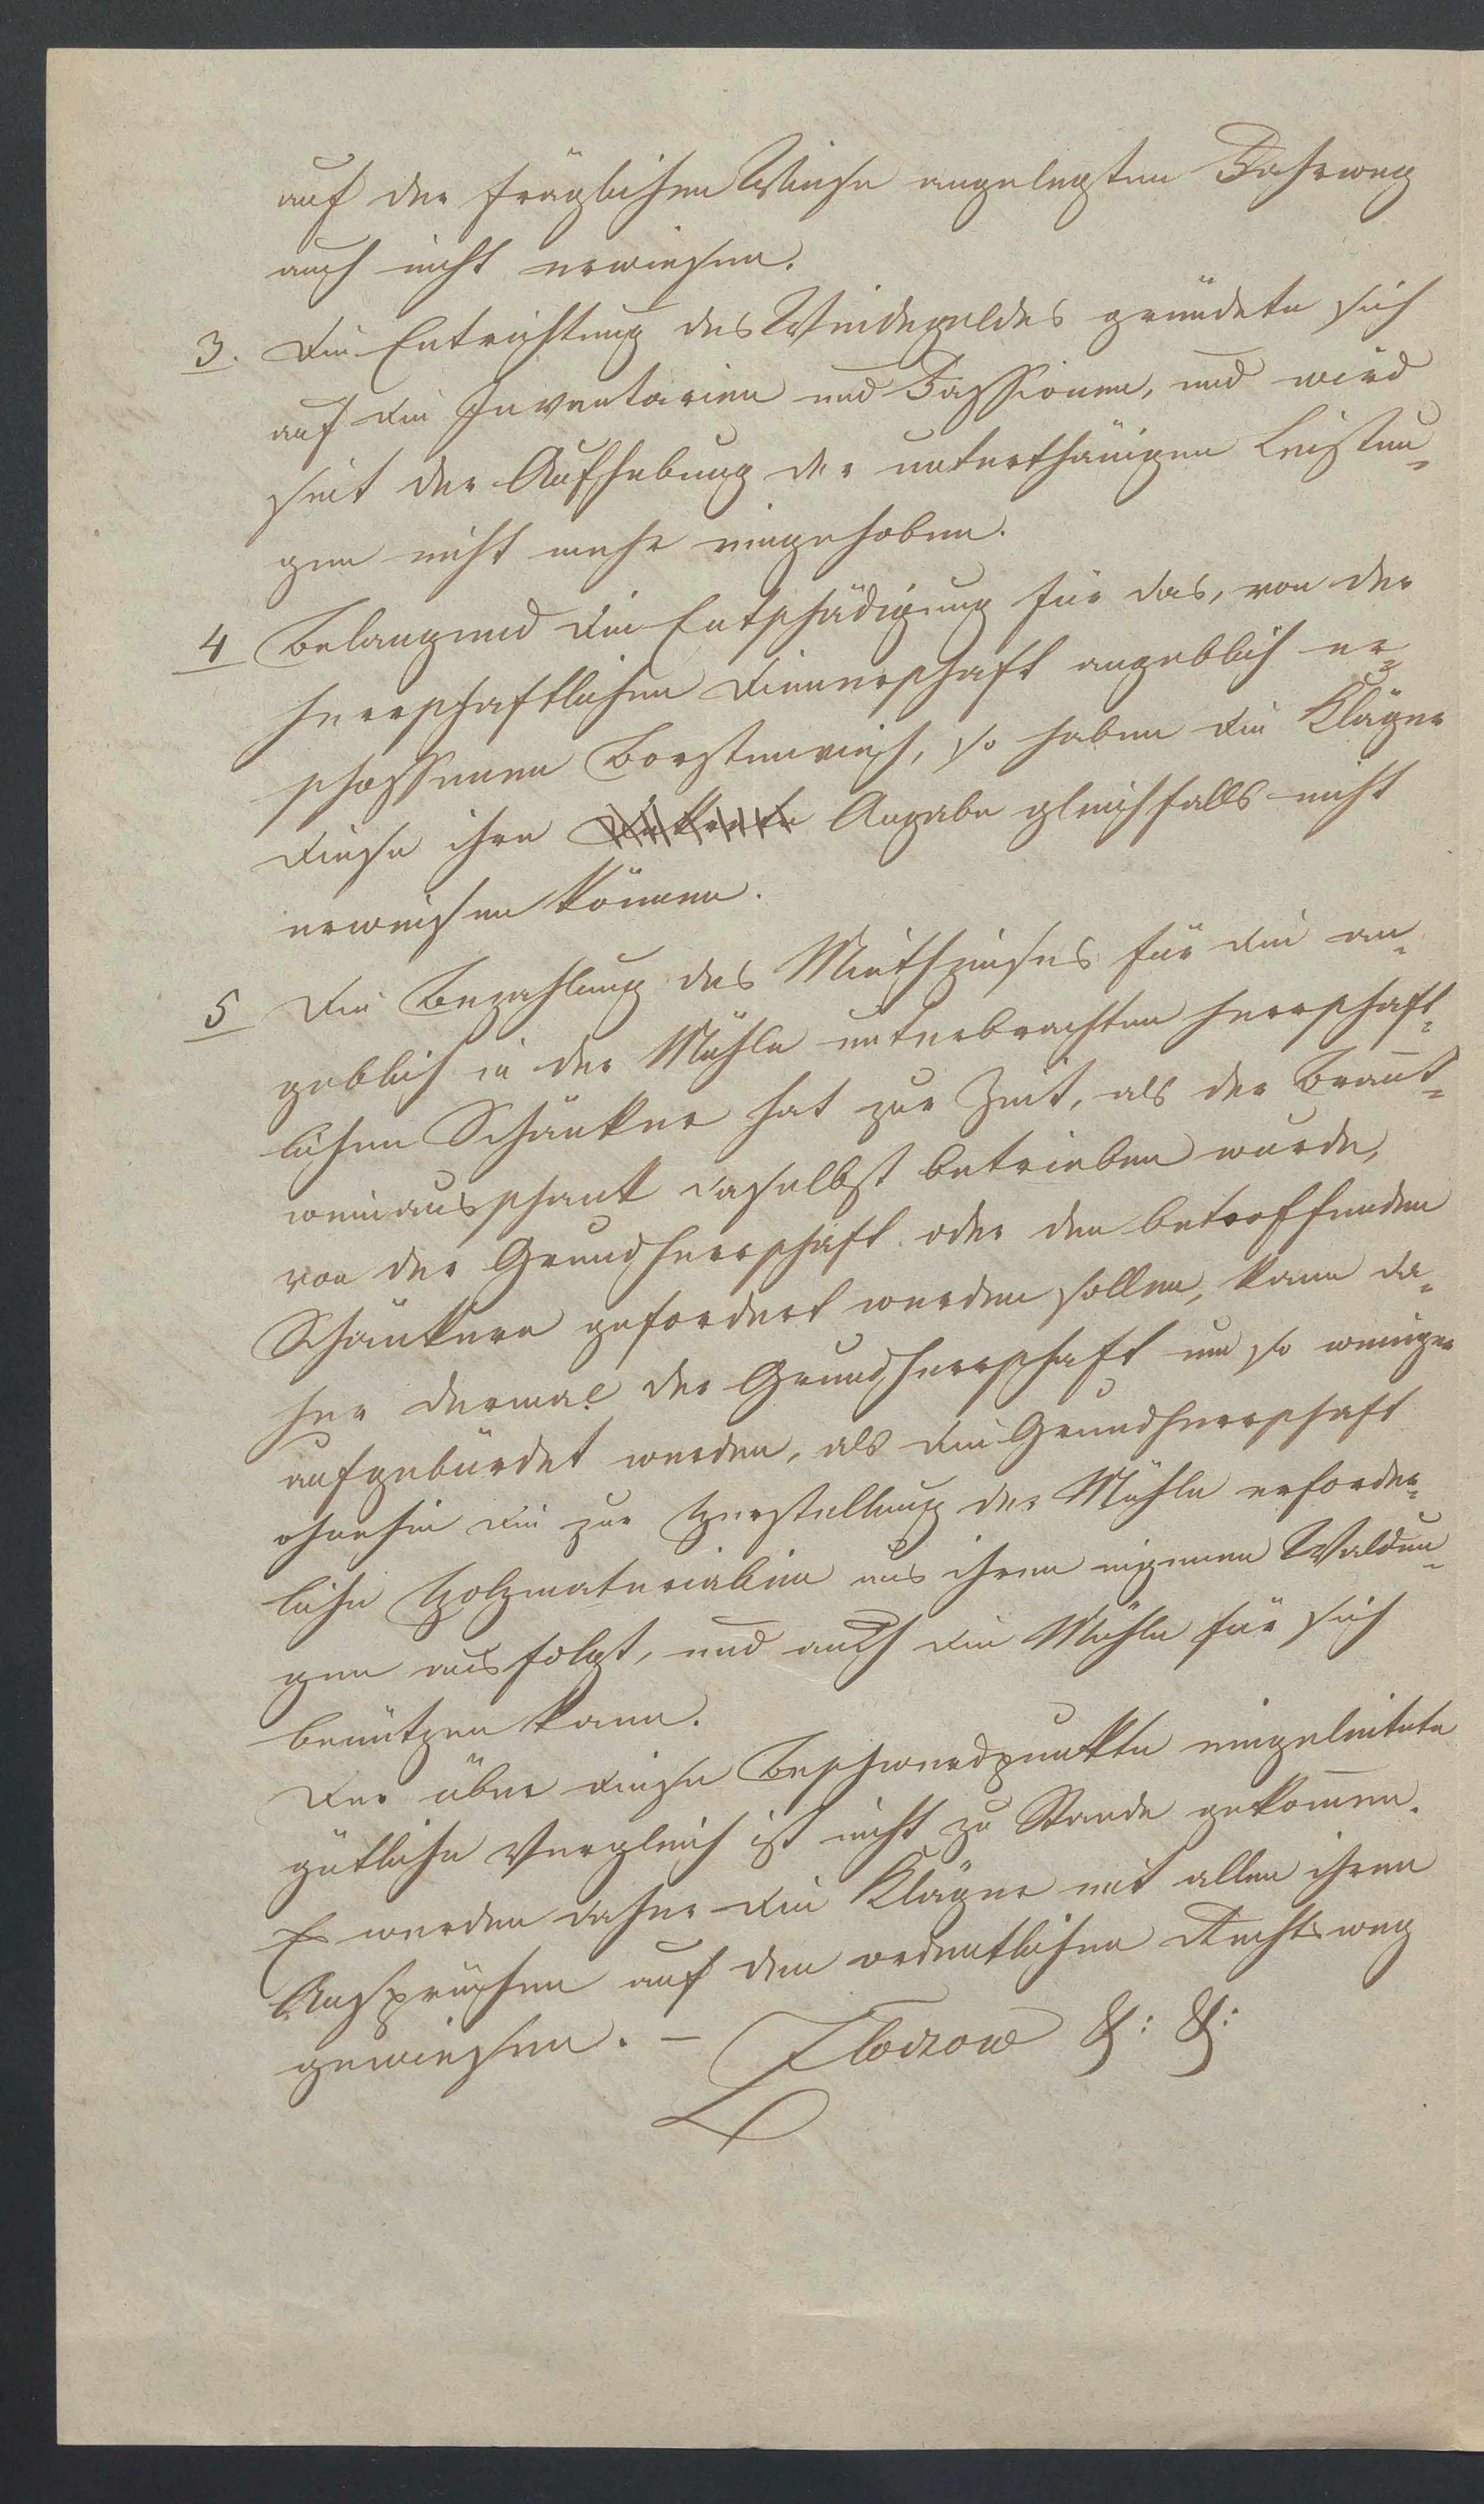 auf der fräglichen Wiese angelegten Fahrweg
auch nicht erwiesen.
3. Die Entrichtung des Weidegeldes gründete sich
auf die Inventarien und Fassionen, und wird
seit der Aufhebung der unterthänigen Leistun¬
gen nicht mehr eingehoben.
4 Belangend die Entschädigung für das, von der
herrschaftlichen Dienerschaft angeblich er¬
schossenen Borstenvieh, so haben die Kläger
diese ihre Angabe gleichfalls nicht
erweisen können.
5 Die Bezahlung des Miethzinses für die an¬
geblich in der Mühle unterbrachten herrschaft¬
lichen Schänker hat zur Zeit, als der Brannt¬
weinausschank daselbst betrieben wurde,
von der Grundherrschaft oder den betreffenden
Schänkern gefordert werden sollen, kann da¬
her dermal der Grundherrschaft um so weniger
aufgebürdet werden, als die Grundherrschaft
ohnehin die zur Herstellung der Mühle erforder¬
liche Holzmaterialien aus ihren eigenen Waldun¬
gen ausfolgt, und auch die Mühle für sich
benützen kann.
Der über diese Beschwerdpunkte eingeleitete
gütliche Vergleich ist nicht zu Stande gekom̅en.
Es werden daher die Kläger mit allen ihren
Ansprüchen auf den ordentlichen Rechtsweg
gewiesen. – Zloczow &: &: